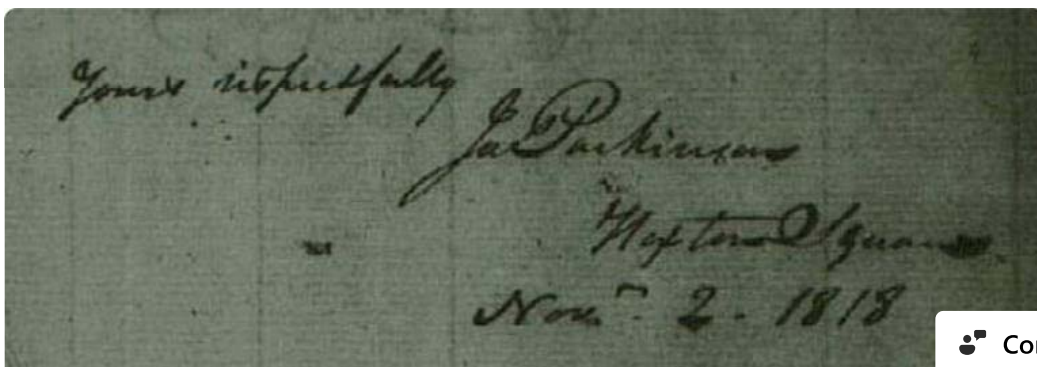 Yours respectfully
Ja Parkinson
Hoxton Square
Novr. 2. 1818
Co